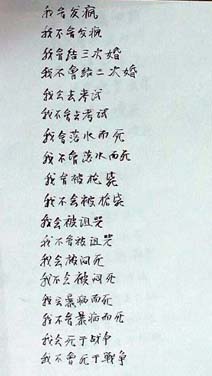 我会发疯
我不会发疯
我会结三次婚
我不会结二次婚
我会去考试
我不会去考试
我会落水而死
我不会落水而死
我会被枪毙
我不会被枪毙
我会被诅咒
我不会被诅咒
我会被闷死
我不会被闷死
我会暴病而死
我不会暴病而死
我会死于战争
我不会死于战争